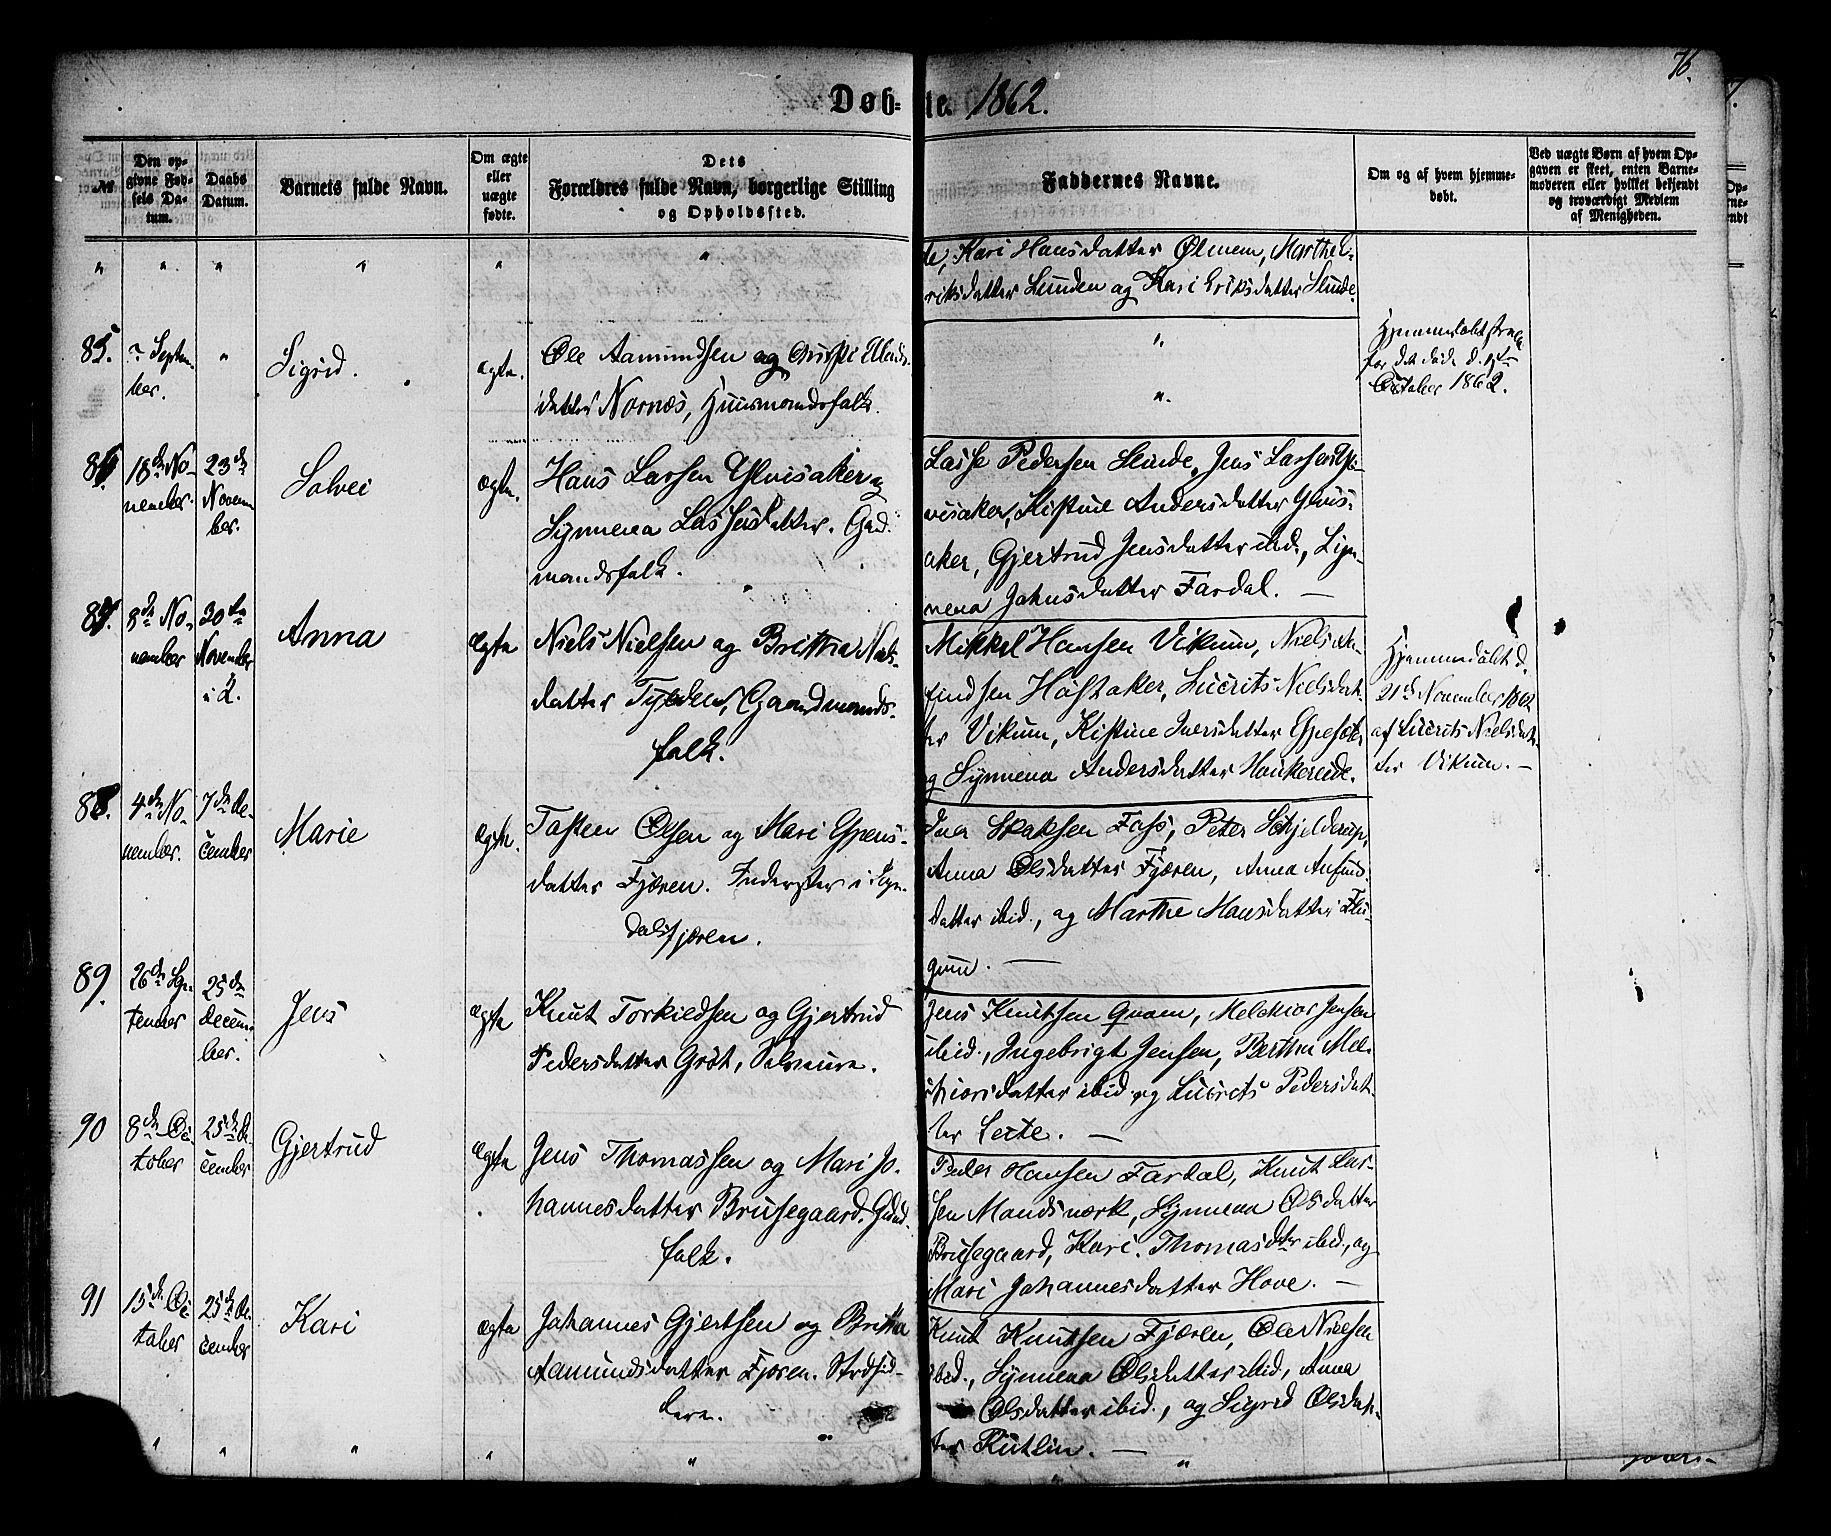 76.
Døbte. 1862.
№
Den opgivne Fødsels Datum.
Daabs Datum.
Barnets fulde Navn.
Om ægte eller uægte født.
Dets Forældres fulde Navn, borgerlige Stilling og Opholdssted.
Faddernes Navne.
Om og af hvem hjemmedøbt.
Ved uægte Børn af hvem Opgaven er skeet, enten Barnemoderen eller hvilket bekjendt og troværdigt Medlem af Menigheden.
" " " " " "
de, Kari Hansdatter Ølmem, Marthe E-
riksdatter Lunden og Kari Eriksdatter Slinde.
85.
? Septem-
ber.
"
Sigrid.
ægte.
Ole Aamundsen og
datter Nornæs, Huusmandsfolk.
"
"
Hjemmedøbt
for det døde d.
October 1862.
86.
18de No-
vember.
23de
Novem
ber.
Solvei
ægte.
Hans Larsen Ylvisaker og
Synneva Lassesdatter. Grd.
mandsfolk.
Lasse Pedersen Slinde, Jens Larsen Yl-
visaker, Kistine Andersdatter Ylvis-
aker, Gjertrud Jensdatter ibid., Syn-
neva Johnsdatter Fardal. —
87.
8de No-
vember
30te
November
i 2.
Anna
ægte
Niels Nielsen og Brittha Niels-
datter Tylden, Gaardmands-
folk.
Mikkel Hansen Vikum, Niels
findsen Hofsaker, Lucrits Nielsdat-
ter Vikum, Kistine Iversdatter
og Synneva Andersdatter Haukereide.
Hjemmedøbt d.
21de November 1862
af Lucrits Nielsdat-
ter Vikum. —
88.
4de No-
vember.
7de De-
cember
Marie
ægte.
Tosten Olsen og Mari Espens-
datter Fjæren. Inderster i Sogn-
dalsfjæren.
Iver Skaksen Foss, Peter Schjelderup,
Anna Olsdatter Fjæren, Anna Anfinds
datter ibid., og Marthe Hansdatter Flu-
gum. —
89.
26de Sep-
tember
25de
Decem-
ber.
Jens
ægte
Knut Torkildsen og Gjertrud
Pedersdatter Grøt, Selveiere.
Jens Knutsen Qvam, Melchior Jensen
ibid., Ingebrigt Jensen, Bertha Mel-
chiorsdatter ibid. og Lucrits Pedersdat-
ter Leite. —
90
8de Oc-
tober
25de De-
cember
Gjertrud
ægte
Jens Thomassen og Mari Jo-
hannesdatter Brusegaard. Grdmd.
folk.
Peder Hansen Fardal, Knut Lar-
sen Mandsværk, Synneva Olsdatter
Brusegaard, Kari Thomasdtr ibid., og
Mari Johannesdatter Hove. —
91
15de Oc-
tober
25de De-
cember
Kari
ægte
Johannes Gjertsen og Britha
Aamundsdatter Fjæren. Strandsid-
dere.
Knut Knutsen Fjæren, Ole Nielsen
ibid., Synneva Olsdatter ibid, Anna
Olsdatter ibid., og Sigrid Olsdat-
ter Kutlin. —
" " " " " "